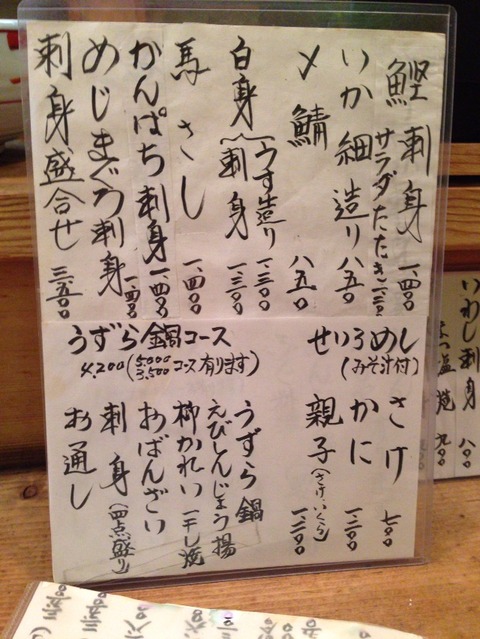 鰹刺身 一、四〇〇
サラダたたき 一、三〇〇
いか細造り 八五〇
〆鯖 八五〇
白身 うす造り 一、三〇〇
刺身 一、三〇〇
馬さし 一、四〇〇
かんぱち刺身 一、四〇〇
めじまぐろ刺身 一、四〇〇
刺身盛合せ 三、五〇〇
せいろめし
(みそ汁付)
さけ 七〇〇
かに 一、三〇〇
親子(さけ、いくら) 一、三〇〇
うずら鍋コース
4,200(5,000 3,500 コース有ります)
うずら鍋
えびしんじょう揚
柳かれい一干し焼
おばんざい
刺身(四点盛り)
お通し
いわし刺身 八〇〇
塩焼 九〇〇